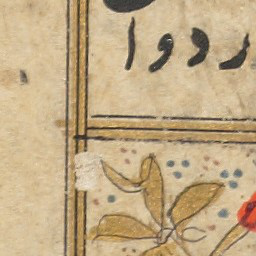 ردوا